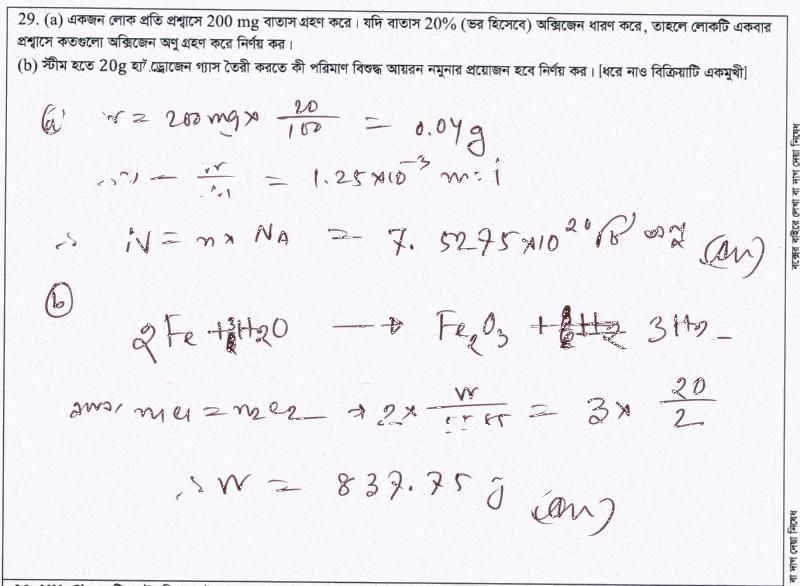 29. (a) একজন লোক প্রতি প্রশ্বাসে 200 mg বাতাস গ্রহণ করে। যদি বাতাস 20% (ভর হিসেবে) অক্সিজেন ধারণ করে, তাহলে লোকটি একবার
প্রশ্বাসে কতগুলো অক্সিজেন অণু গ্রহণ করে নির্ণয় কর।
(b) স্টীম হতে 20g হাইড্রোজেন গ্যাস তৈরী করতে কী পরিমাণ বিশুদ্ধ আয়রন নমুনার প্রয়োজন হবে নির্ণয় কর। [ধরে নাও বিক্রিয়াটি একমুখী]
(a) w = 200 mg × 20/100 = 0.04g
= 1.25×10⁻³ mol
∴ N = n × NA = 7.5275×10²⁰ টি অণু (Ans)
(b)
2Fe + 3H2O → Fe2O3 + 3H2
m1e1 = m2e2 → 2 × W/55.85 = 3 × 20/2
∴ W = 837.75 g (Ans)
বক্সের বাইরে লেখা বা দাগ দেয়া নিষেধ
বা দাগ দেয়া নিষেধ